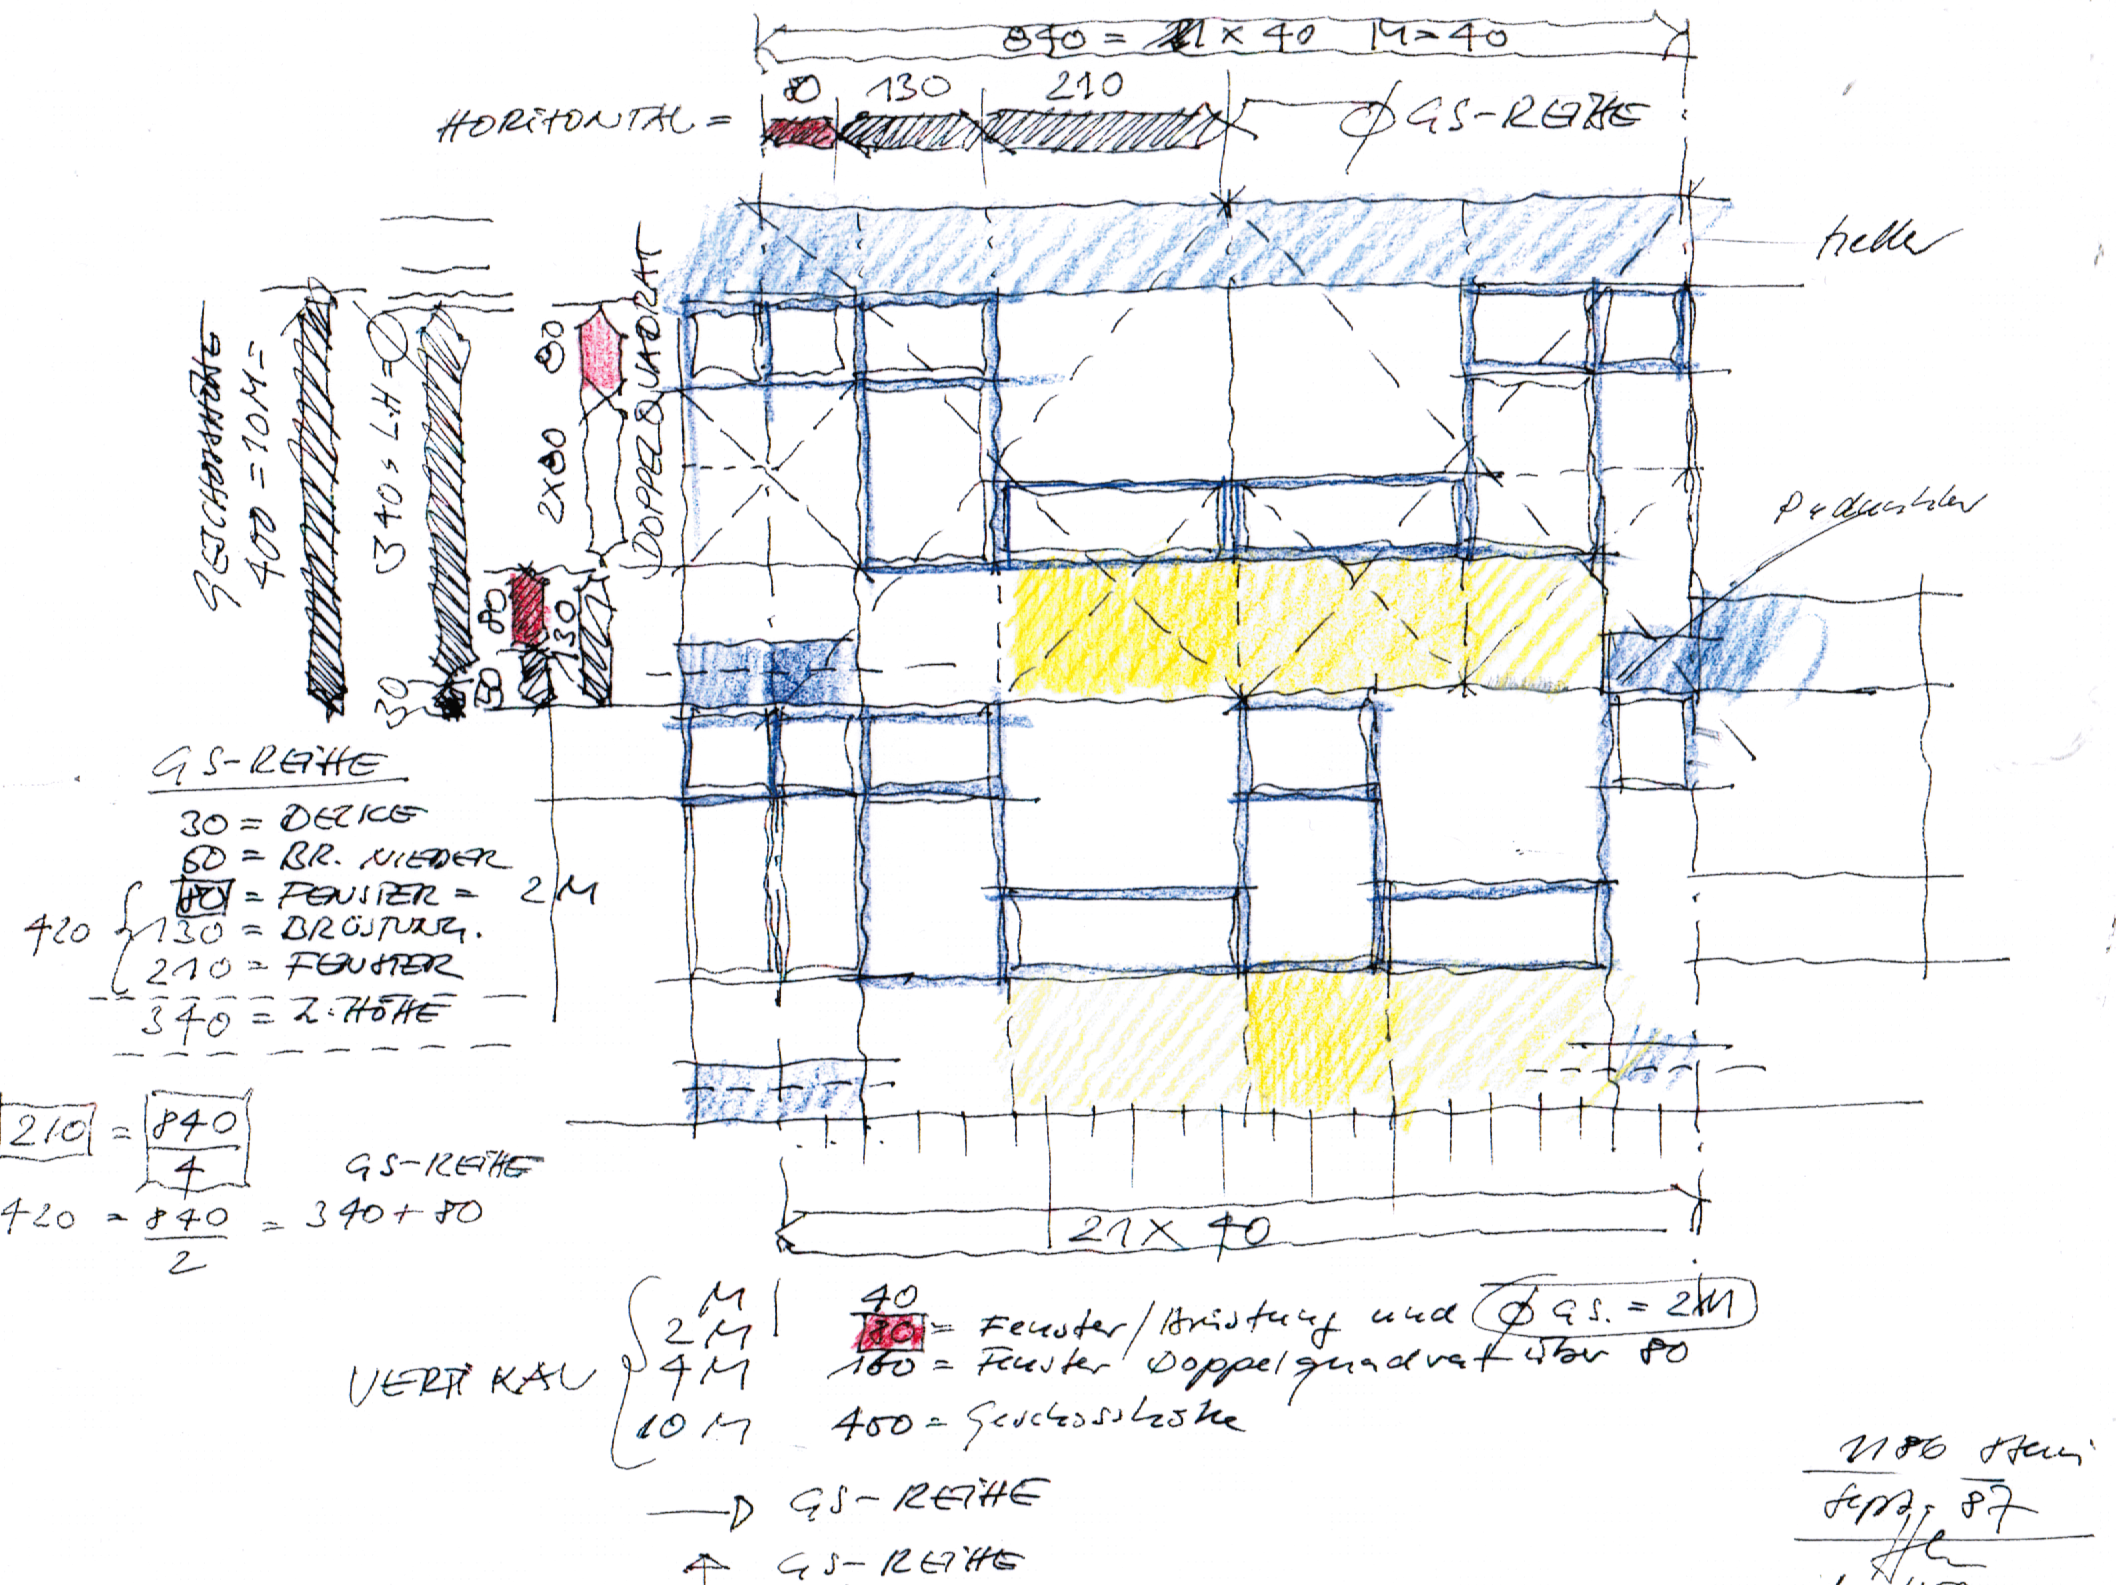 840 = 21 × 40 M = 40
80 130 210
HORIZONTAL = ϕ GS-REIHE
heller
GESCHOSSHÖHE
400 = 10M =
340 = L.H =
30
80
2X80
80
50
130
DOPPELQUADRAT
GS-REIHE
30 = DECKE
50 = BR. NIEDER
80 = FENSTER = 2M
420 { 130 = BRÜSTUNG.
210 = FENSTER
340 = L.HÖHE
210 = 840
4
GS-REIHE
420 = 840 = 340 + 80
2
21 X 40
VERTIKAL
M 40
2M 80 = Fenster/Brüstung und ϕ GS. = 2M
4M 160 = Fenster Doppelquadrat über 80
10M 400 = Geschosshöhe
→ GS-REIHE
↑ GS-REIHE
1186
Sept. 87